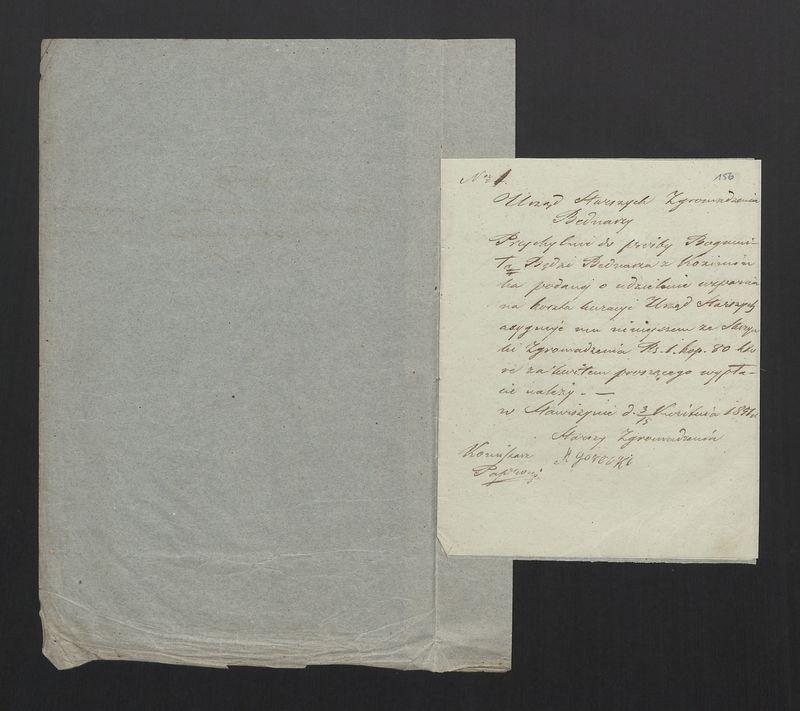 Nro 1.
156
Urząd Starszych Zgromadzenia
Bednarzy
Przychylnie do prośby Bogumi-
ła Bednarza z
ka podanej o udzielenie wsparcia
na koszta kuracyi Urząd Starszych
asygnuje mu niniejszem ze Skrzyn
ki Zgromadzenia Rs. 1. kop. 80 któ
re za kwitem proszącego wypła-
cić należy. —
w Stawiszynie d. 3/15 Kwietnia
Starszy Zgromadzenia
Gorecki